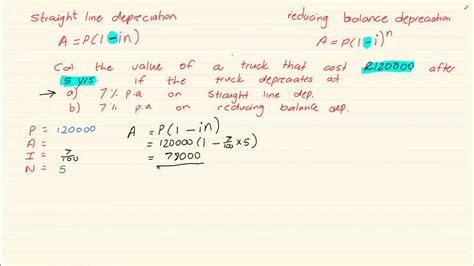 Straight line depreciation reducing balance depreciation
A=P(1-in) A=P(1-i)^n
Cal the value of a truck that cost R120000 after
5 yrs if the truck depreciates at
→ a) 7% p.a on straight line dep.
b) 7% p.a on reducing balance dep.
P = 120000 A = P(1-in)
A = = 120000(1 - 7/100 x 5)
I = 7/100 = 78000
N = 5